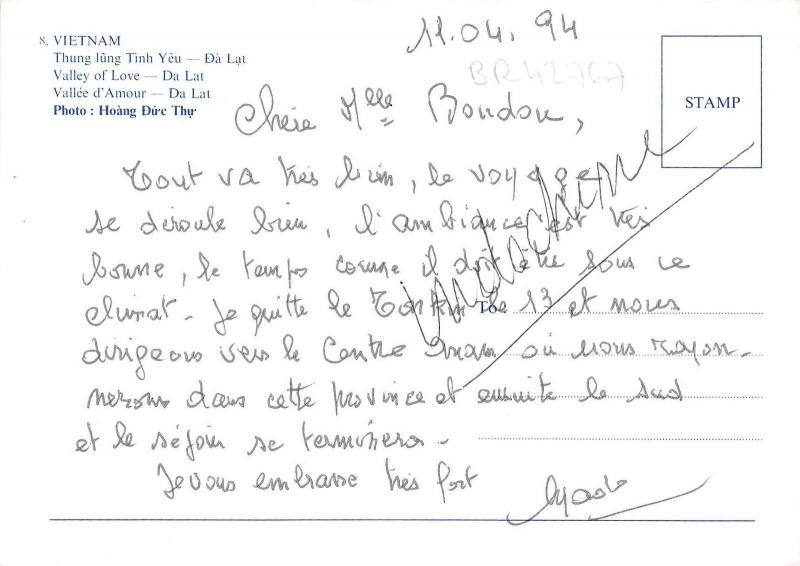 8. VIETNAM
Thung lũng Tình Yêu — Đà Lạt
Valley of Love — Da Lat
Vallée d'Amour — Da Lat
Photo : Hoàng Đức Thự
11.04.94
BR42767
STAMP
Chère Mlle Boudou,
Tout va très bien, le voyage
se déroule bien, l'ambiance est très
bonne, le temps comme il doit être sous ce
climat - Je quitte le Tonkin le 13 et nous
To
dirigeons vers le Centre Anam où nous rayon-
nerons dans cette province et ensuite le sud
et le séjour se terminera -
Je vous embrasse très fort
Indochine